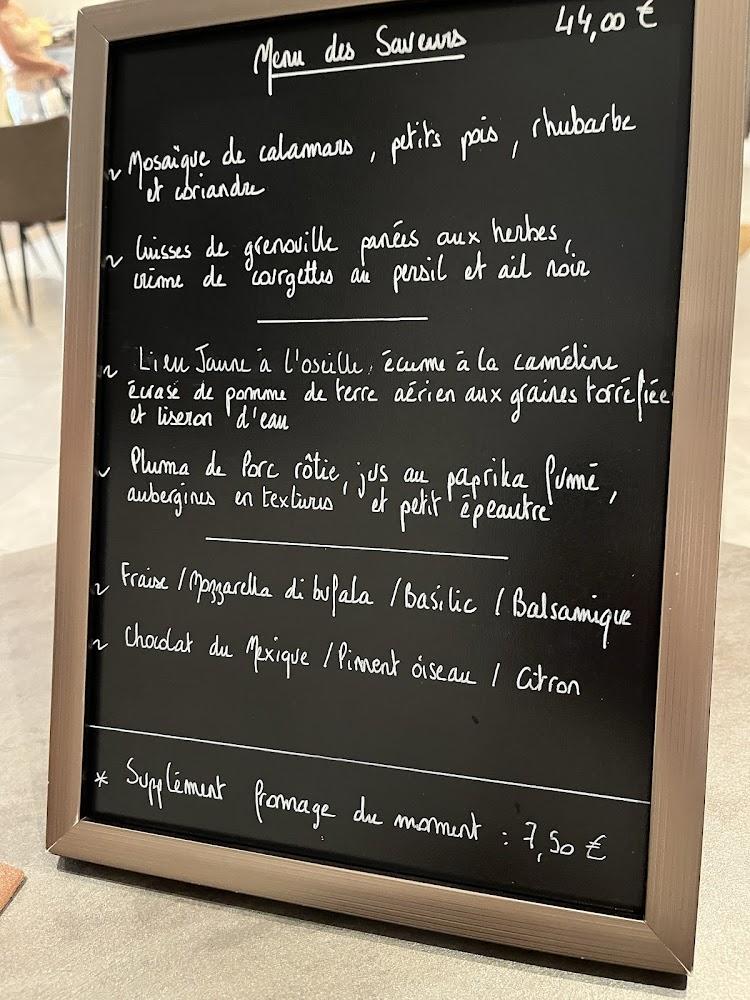 Menu des Saveurs 44,00 €
~ Mosaïque de calamars, petits pois, rhubarbe
et coriandre
~ Cuisses de grenouille panées aux herbes,
crème de courgettes au persil et ail noir
~ Lieu Jaune à l'oseille, écume à la caméline
écrasé de pomme de terre aérien aux graines torréfiée
et liseron d'eau
~ Pluma de Porc rôtie, jus au paprika fumé,
aubergines en textures et petit épeautre
~ Fraise / Mozzarella di bufala / Basilic / Balsamique
~ Chocolat du Mexique / Piment oiseau / Citron
* Supplément fromage du moment : 7,50 €